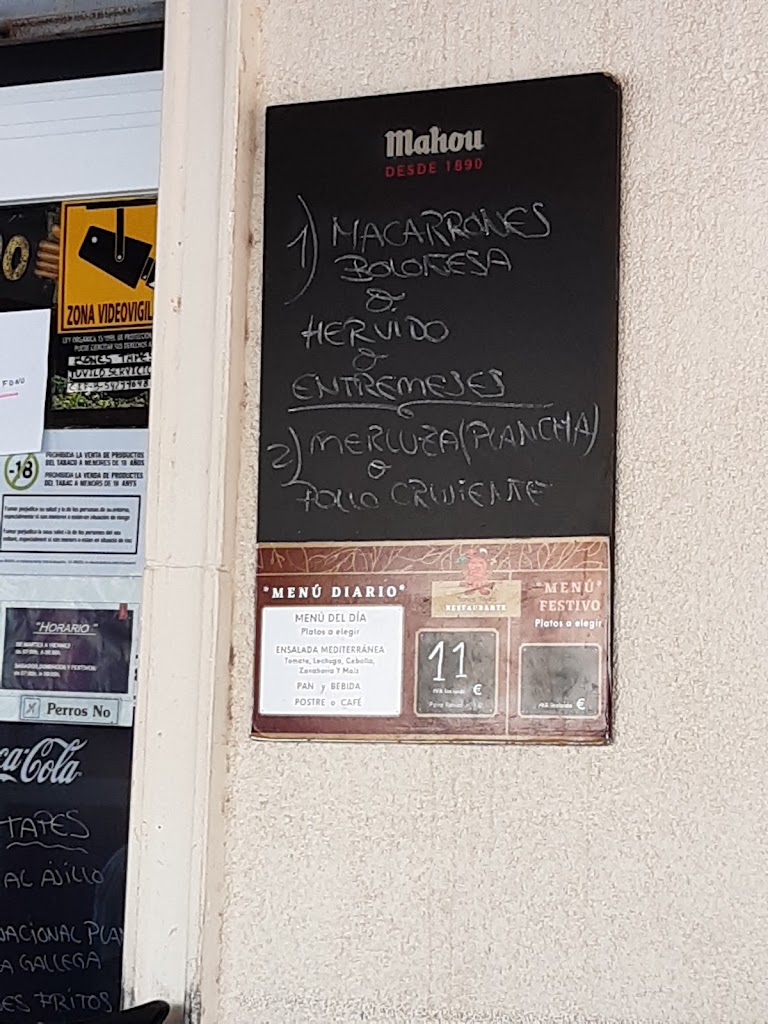 Mahou
DESDE 1890
1) MACARRONES
BOLOÑESA
o
HERVIDO
o
ENTREMESES
2) MERLUZA (PLANCHA)
o
POLLO CRUJIENTE
"MENÚ DIARIO"
MENÚ DEL DÍA
Platos a elegir
ENSALADA MEDITERRÁNEA
Tomate, Lechuga, Cebolla,
Zanahoria Y Maíz
PAN y BEBIDA
POSTRE o CAFÉ
RESTAURANTE
11
IVA incluido €
"MENÚ
FESTIVO
Platos a elegir
IVA incluido €
ZONA VIDEOVIGIL
FONO
-18
PROHIBIDA LA VENTA DE PRODUCTOS
DEL TABACO A MENORES DE 18 AÑOS
PROHIBIDA LA VENDA DE PRODUCTES
DEL TABAC A MENORS DE 18 ANYS
"HORARIO"
Perros No
ca-Cola
TAPES
AL AJILLO
NACIONAL PLAN
A GALLEGA
ES FRITOS